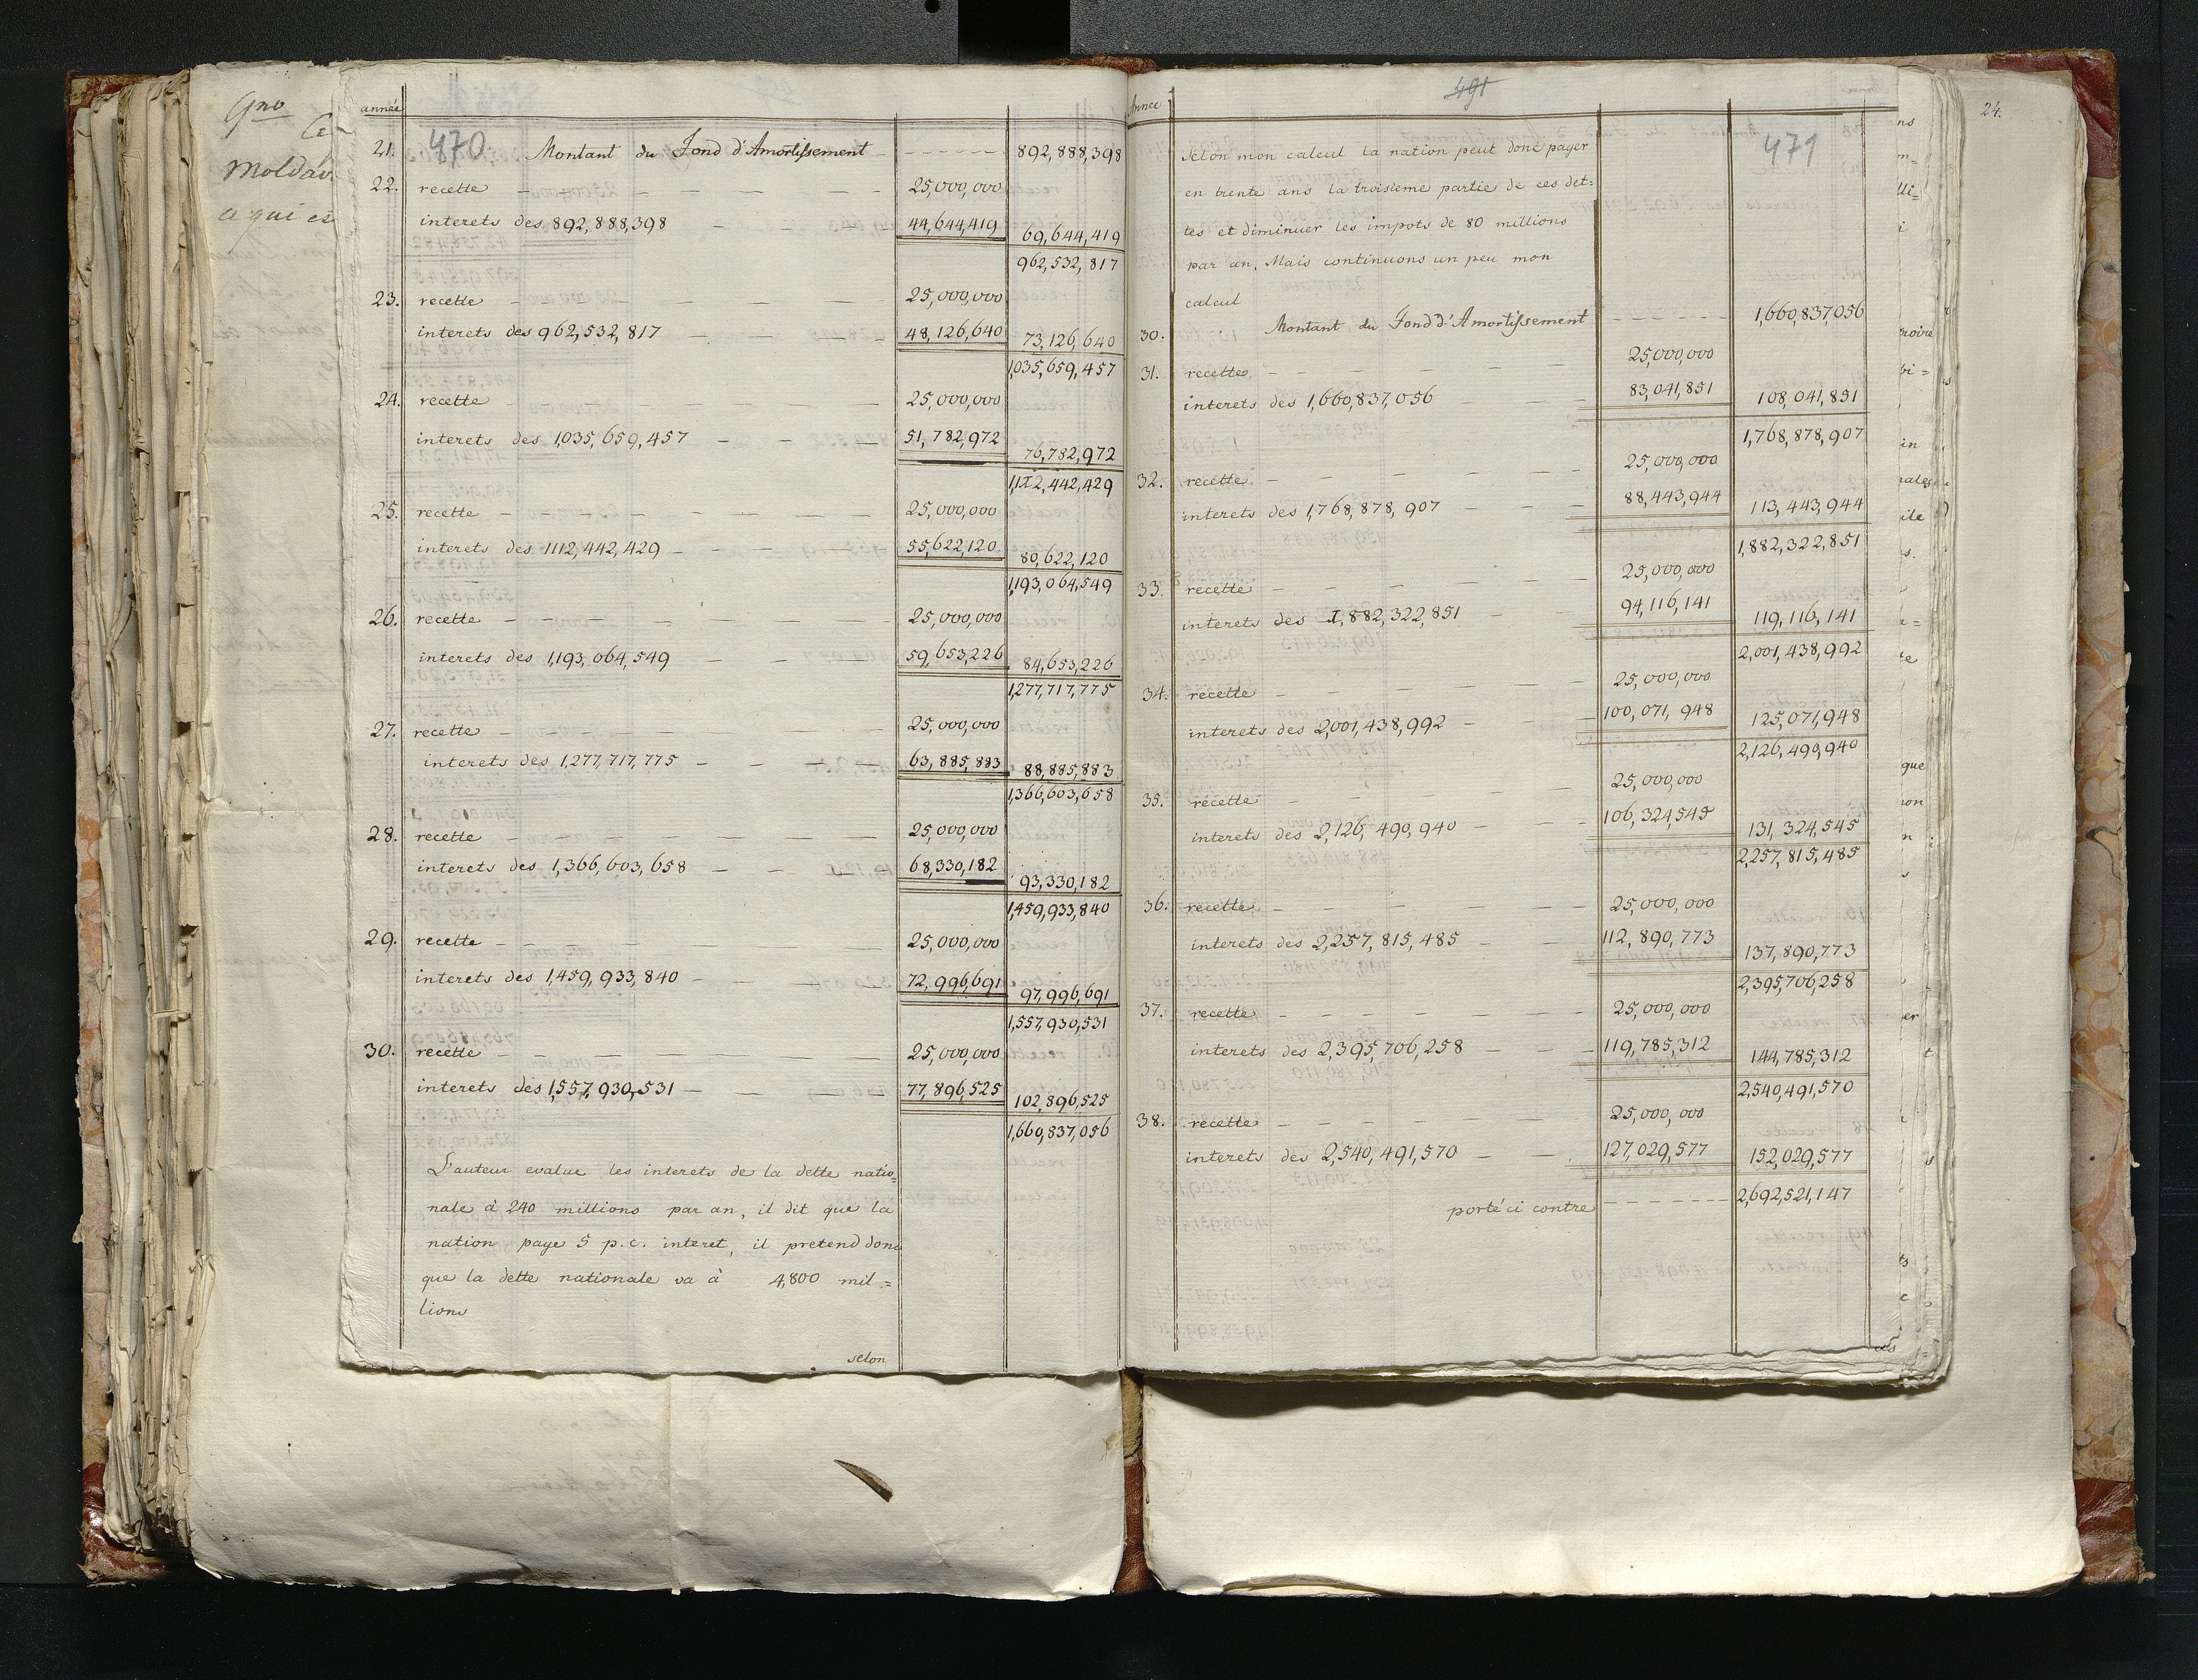 Gno
Ce
Moldav
a qui es
année
470
21. Montant du Fond d'Amortissement - - - - - 892,888,398
22. recette 25,000,000
interets des 892,888,398 44,644,419 69,644,419
962,532,817
23. recette 25,000,000
interets des 962,532,817 48,126,640 73,126,640
1,035,659,457
24. recette 25,000,000
interets des 1,035,659,457 51,782,972 76,782,972
1,112,442,429
25. recette 25,000,000
interets des 1112,442,429 55,622,120 80,622,120
1,193,064,549
26. recette 25,000,000
interets des 1,193,064,549 59,653,226 84,653,226
1,277,717,775
27. recette 25,000,000
interets des 1,277,717,775 63,885,883 88,885,883
1,366,603,658
28. recette 25,000,000
interets des 1,366,603,658 68,330,182 93,330,182
1,459,933,840
29. recette 25,000,000
interets des 1,459,933,840 72,996,691 97,996,691
1,557,930,531
30. recette 25,000,000
interets des 1,557,930,531 77,896,525 102,896,525
1,660,837,056
L'auteur evalue les interets de la dette natio=
nale à 240 millions par an, il dit que la
nation paye 5 p.c. interet, il pretend donc
que la dette nationale va à 4,800 mil=
lions
selon
Année
491
471
selon mon calcul la nation peut donc payer
en trente ans la troisieme partie de ces det=
tes et diminuer les impots de 80 millions
par an. Mais continuons un peu mon
calcul
30. Montant du Fond d'Amortissement - - - - - 1,660,837,056
31. recette 25,000,000
interets des 1,660,837,056 83,041,851 108,041,851
1,768,878,907
32. recette 25,000,000
interets des 1,768,878,907 88,443,944 113,443,944
1,882,322,851
33. recette 25,000,000
interets des 1,882,322,851 94,116,141 119,116,141
2,001,438,992
34. recette 25,000,000
interets des 2,001,438,992 100,071,948 125,071,948
2,126,490,940
35. recette 25,000,000
interets des 2,126,490,940 106,324,545 131,324,545
2,257,815,485
36. recette 25,000,000
interets des 2,257,815,485 112,890,773 137,890,773
2,395,706,258
37. recette 25,000,000
interets des 2,395,706,258 119,785,312 144,785,312
2,540,491,570
38. recette 25,000,000
interets des 2,540,491,570 127,029,577 152,029,577
porté ci contre - - - - - 2,692,521,147
24.